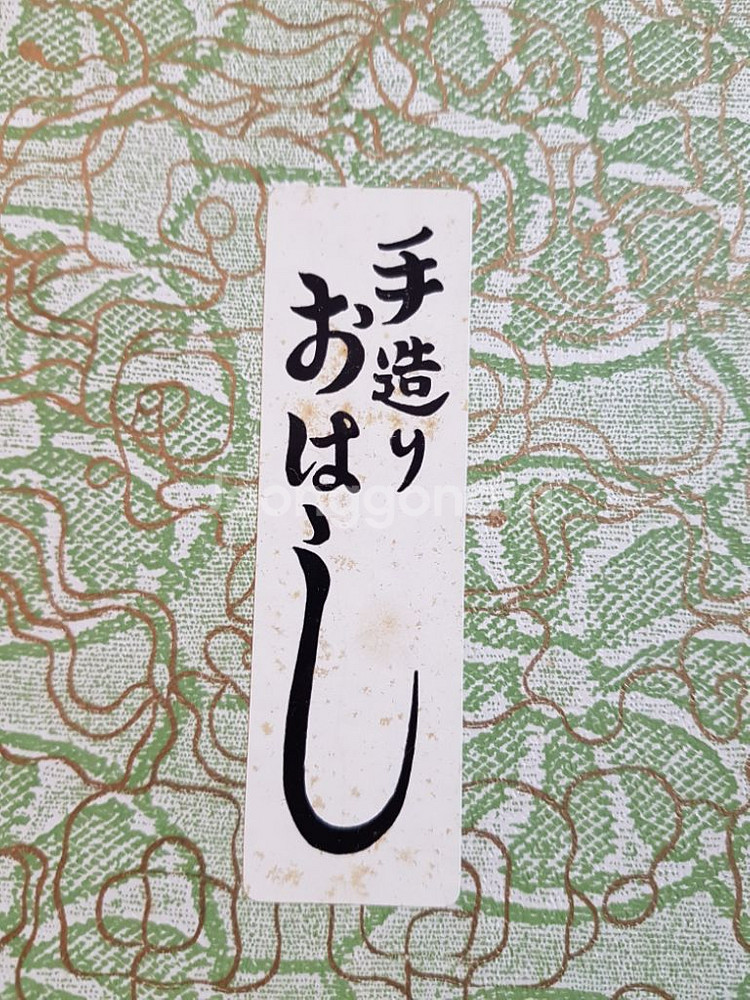 手造り
おはし